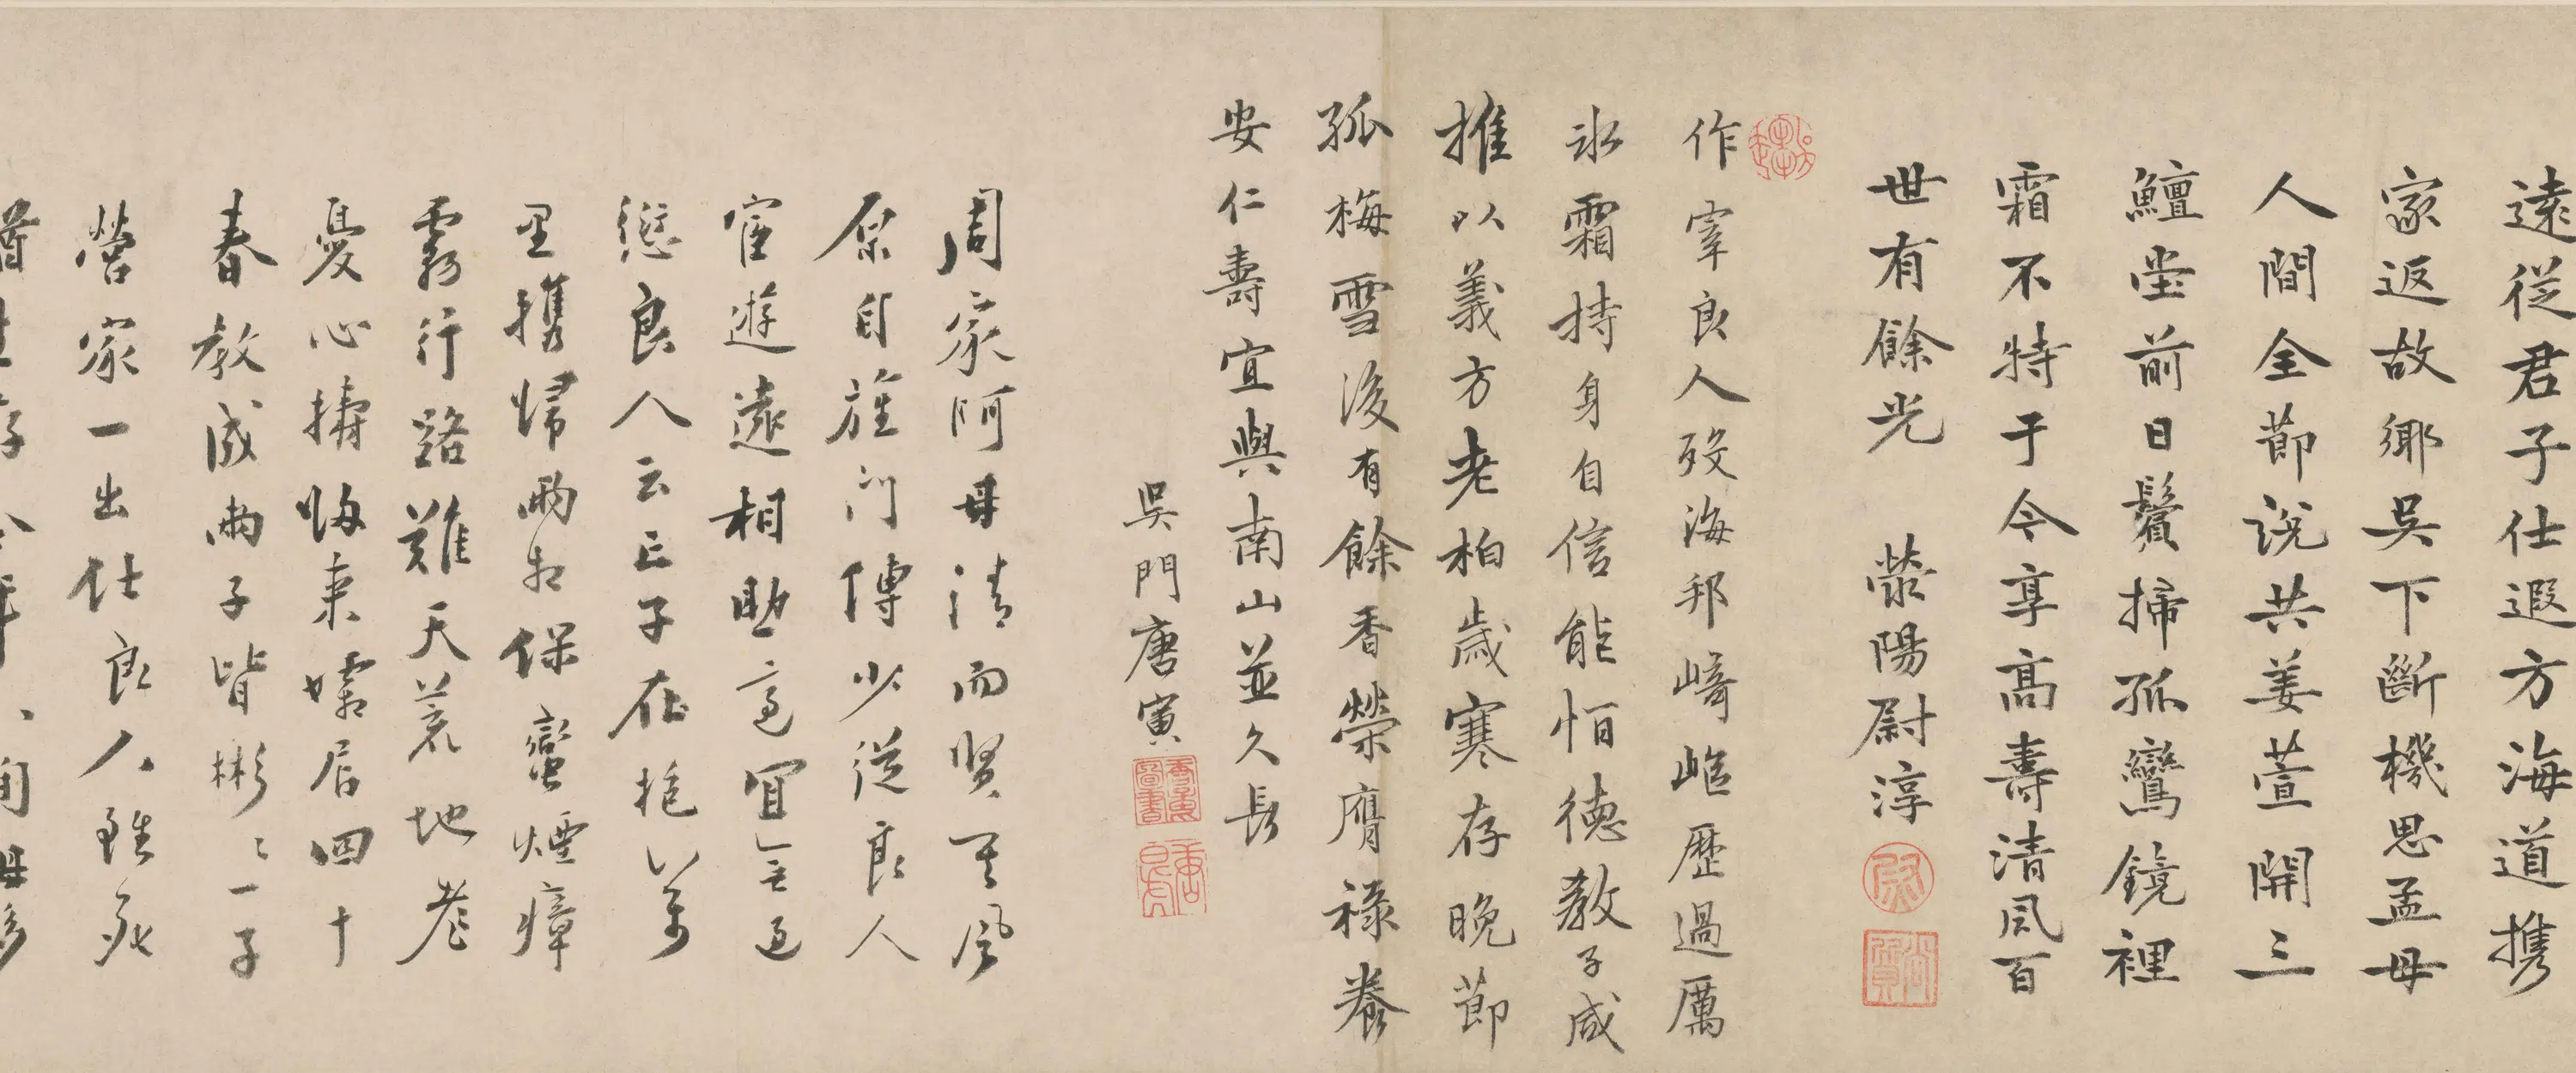 遠從君子仕遐方海道携
家返故鄉吳下斷機思孟母
人間全節說共姜萱開三
鱣堂前日鬢掃孤鸞鏡裡
霜不特于今享高壽清風百
世有餘光 滎陽尉淳
作宰良人歿海邦崎嶇歷過厲
冰霜持身自信能怕德教子咸
推以義方老柏歲寒存晚節
孤梅雪後有餘香榮膺祿養
安仁壽宜與南山並久長
吳門唐寅
周家阿母清而賢其風
原自旌門傳少從良人
宦遊遠相助意宜無過
愆良人云亡子在抱萬
里攜歸兩相保蠻煙瘴
霧行路難天荒地老
憂心擣歸來孀居四十
春教成兩子皆彬彬一子
營家一出仕良人雖死